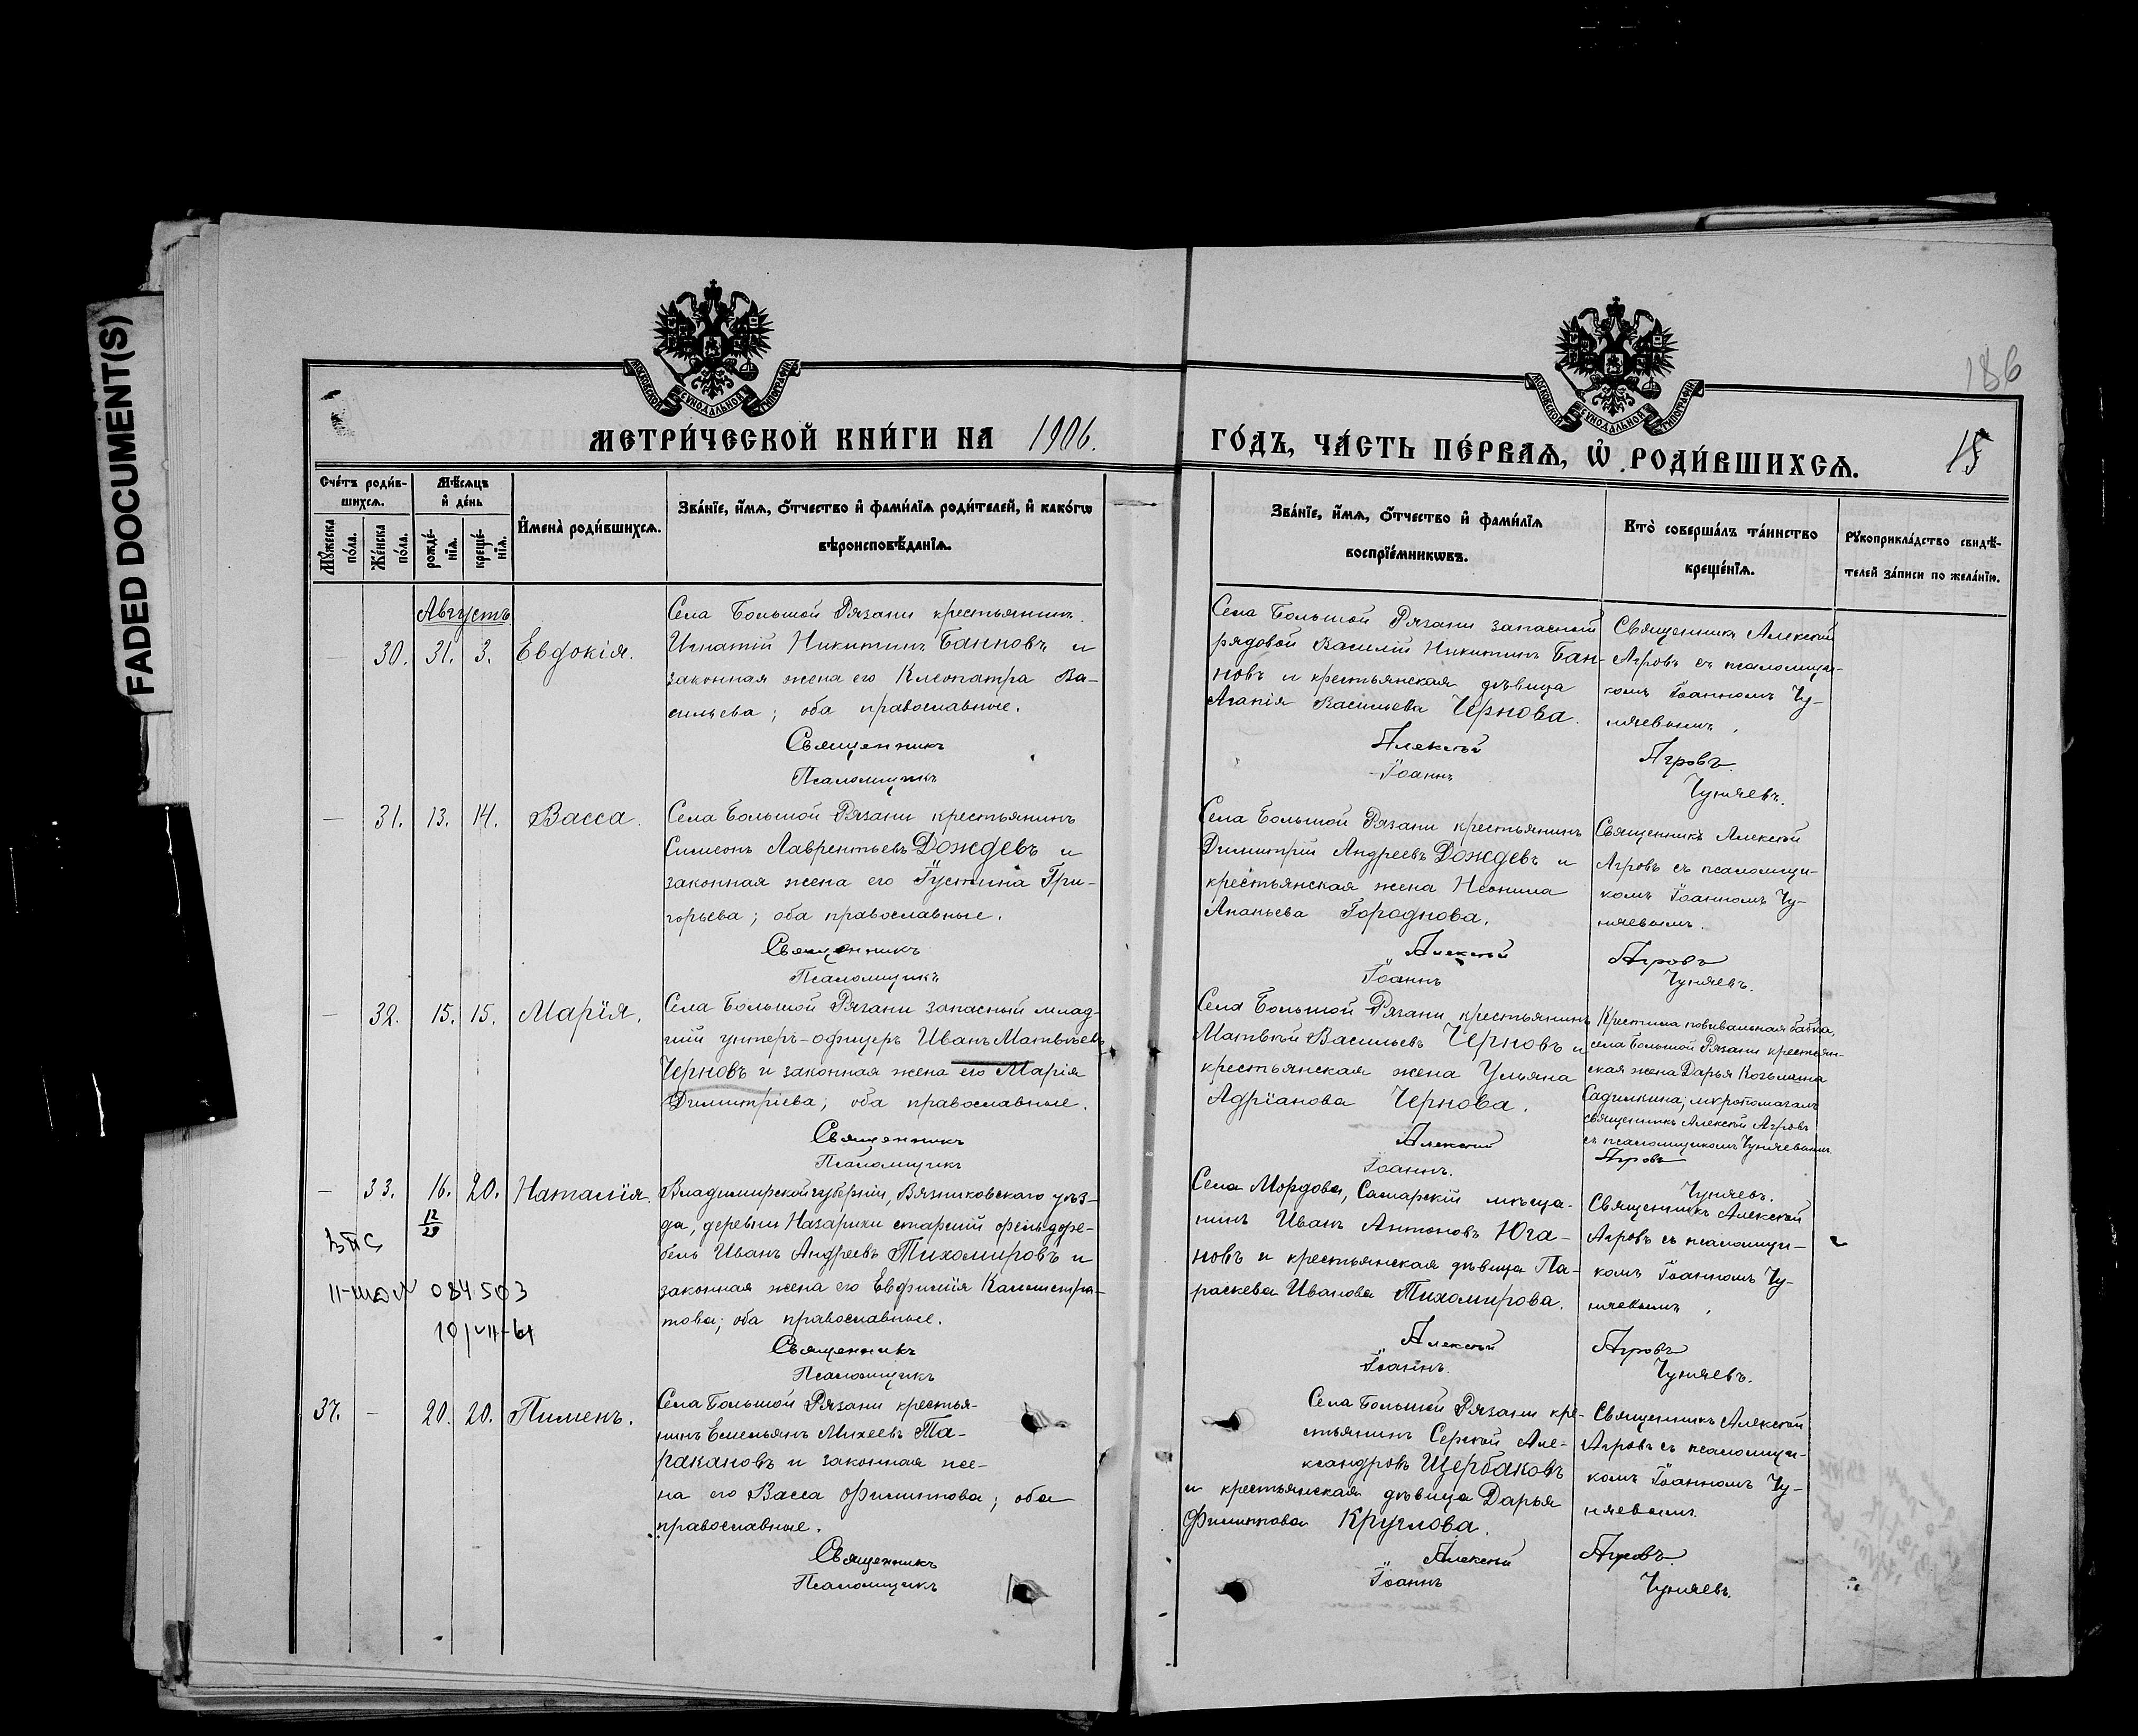 FADED DOCUMENT(S)
МОСКОВСКОЙ СѴНОДАЛЬНОЙ ТИПОГРАФІИ
МОСКОВСКОЙ СѴНОДАЛЬНОЙ ТИПОГРАФІИ
186
МЕТРИ́ЧЕСКОЙ КНИ́ГИ НА 1906.
ГО́ДЪ, ЧА́СТЬ ПЕ́РВАѦ, Ѡ҆ РОДИ́ВШИХСѦ.
15
Сче́тъ роди́в-
шихсѧ.
Мꙋ́жеска
по́ла.
Же́нска
по́ла.
Мѣ́сѧцъ
и҆ де́нь
рожде́-
нїѧ.
креще́-
нїѧ.
И҆мена̀ роди́вшихсѧ.
Зва́нїе, и҆́мѧ, о҆́тчество и҆ фами́лїѧ роди́телей, и҆ како́гѡ
вѣроисповѣ́данїѧ.
Зва́нїе, и҆́мѧ, о҆́тчество и҆ фами́лїѧ
воспрїе́мникѡвъ.
Кто̀ соверша́лъ та́инство
креще́нїѧ.
Рꙋкоприкла́дство свидѣ́-
телей за́писи по жела́нїю.
Августъ
— 30. 31. 3. Евдокія.
Села Большой Рязани крестьянинъ
Игнатій Никитинъ Банновъ и
законная жена его Клеопатра Ва-
сильева; оба православные.
Священникъ
Псаломщикъ
Села Большой Рязани запасной
рядовой Василій Никитинъ Бан-
новъ и крестьянская дѣвица
Агапія Васильева Чернова.
Алексій
Іоаннъ
Священникъ Алексій
Агровъ съ псаломщи-
комъ Іоанномъ Чу-
няевымъ.
Агровъ.
Чуняевъ.
— 31. 13. 14. Васса.
Села Большой Рязани крестьянинъ
Симеонъ Лаврентьевъ Дождевъ и
законная жена его Іустина Гри-
горьева; оба православные.
Священникъ
Псаломщикъ
Села Большой Рязани крестьянинъ
Димитрій Андреевъ Дождевъ и
крестьянская жена Неонила
Ананьева Городнова.
Алексій
Іоаннъ
Священникъ Алексій
Агровъ съ псаломщи-
комъ Іоанномъ Чу-
няевымъ.
Агровъ
Чуняевъ.
— 32. 15. 15. Марія.
Села Большой Рязани запасный млад-
шій унтеръ-офицеръ Иванъ Матвѣевъ
Черновъ и законная жена его Марія
Димитріева; оба православные.
Священникъ
Псаломщикъ
Села Большой Рязани крестьянинъ
Матвѣй Васильевъ Черновъ и
крестьянская жена Ульяна
Адріанова Чернова.
Алексій
Іоаннъ.
Крестила повивальная бабка,
села Большой Рязани крестьян-
ская жена Дарья Козьмина
Садилкина; мѵропомазалъ
священникъ Алексій Агровъ
съ псаломщикомъ Чуняевымъ.
Агровъ
Чуняевъ.
— 33. 16. 20. Наталія.
12
29
ЗАГС
084503
10/VII-61
Владимирской губерніи, Вязниковскаго уѣз-
да, деревни Назарихи старшій фельдфе-
бель Иванъ Андреевъ Тихомировъ и
законная жена его Евфимія Каллистра-
това; оба православные.
Священникъ
Псаломщикъ
Села Мордова, Самарскій мѣща-
нинъ Иванъ Антоновъ Юга-
новъ и крестьянская дѣвица Па-
раскева Иванова Тихомирова.
Алексій
Іоаннъ.
Священникъ Алексій
Агровъ съ псаломщи-
комъ Іоанномъ Чу-
няевымъ.
Агровъ
Чуняевъ.
37. — 20. 20. Пименъ.
Села Большой Рязани крестья-
нинъ Емельянъ Михеевъ Та-
ракановъ и законная же-
на его Васса Филиппова; оба
православные.
Священникъ
Псаломщикъ
Села Большой Рязани кре-
стьянинъ Сергій Але-
ксандровъ Щербаковъ
и крестьянская дѣвица Дарья
Филиппова Круглова.
Алексій
Іоаннъ
Священникъ Алексій
Агровъ съ псаломщи-
комъ Іоанномъ Чу-
няевымъ.
Агровъ.
Чуняевъ.